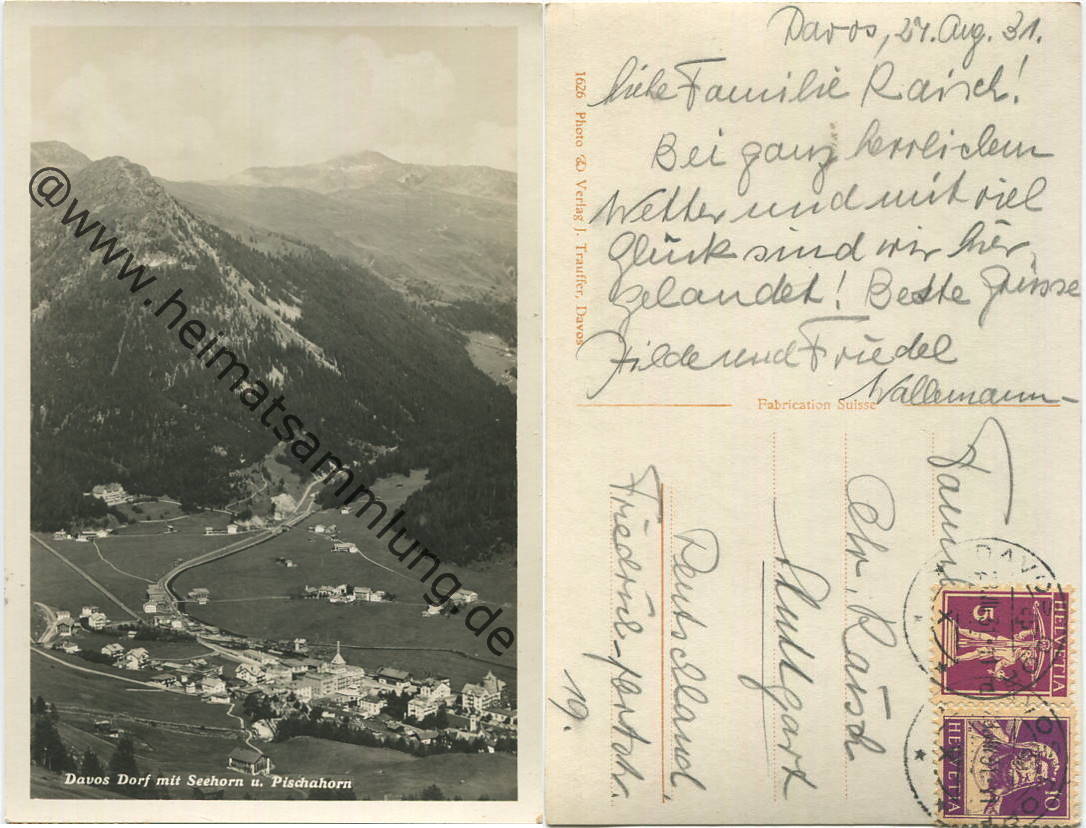 @www.heimatsammlung.de
Davos Dorf mit Seehorn u. Pischahorn
1626 Photo & Verlag J. Trauffer, Davos
Davos, 27. Aug. 31.
Liebe Familie Raisch!
Bei ganz herrlichem
Wetter und mit viel
Glück sind wir hier
gelandet! Beste Grüsse
Hilde und Friedel
Wallemann
Fabrication Suisse
Chr. Raisch
Stuttgart
Deutschland
19.
5
HELVETIA
10
HELVETIA